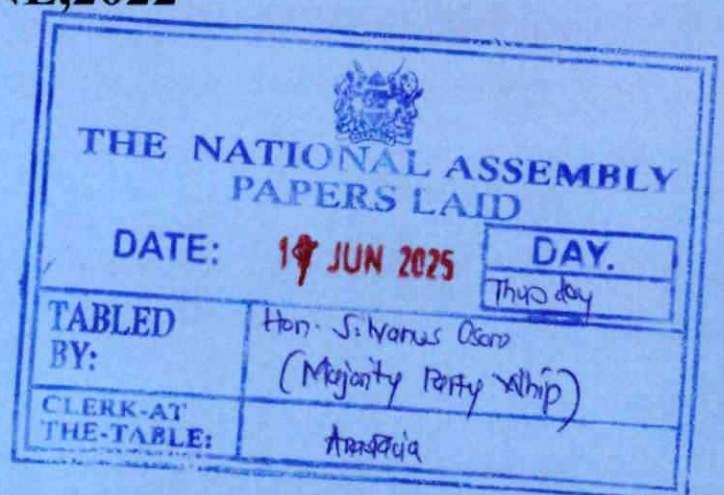 NE,2022
THE NATIONAL ASSEMBLY
PAPERS LAID
DATE: JUN 2025 DAY.
Thursday
TABLED BY: Hon. Silvanus Osoro
(Majority Party Whip)
CLERK-AT THE-TABLE: Anastacia